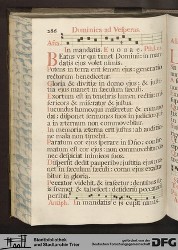 286 Dominica ad Vesperas
Aña.
In mandatis. E u o u a e.
Beatus vir qui timet Dominum: in man-
datis ejus volet nimis.
Potens in terra erit semen ejus: generatio
rectorum benedicetur.
Gloria & divitiæ in domo ejus: & justi-
tia ejus manet in sæculum sæculi.
Exortum est in tenebris lumen rectis: mi-
sericors & miserator & justus.
Jucundus homo qui miseretur & commo-
dat: disponet sermones suos in judicio: quia
in æternum non commovebitur.
In memoria æterna erit justus: ab auditio-
ne mala non timebit.
Paratum cor ejus sperare in Dño: confir-
matum est cor ejus: non commovebitur do-
nec despiciat inimicos suos.
Dispersit dedit pauperibus: justitia ejus ma-
net in sæculum sæculi: cornu ejus exalta-
bitur in gloria.
Peccator videbit, & irascetur: dentibus suis
fremet & tabescet: desiderium peccatorum
peribit.
Antiph. In mandatis ejus cupit nimis.
Stadtbibliothek
und Stadtarchiv Trier
DFG